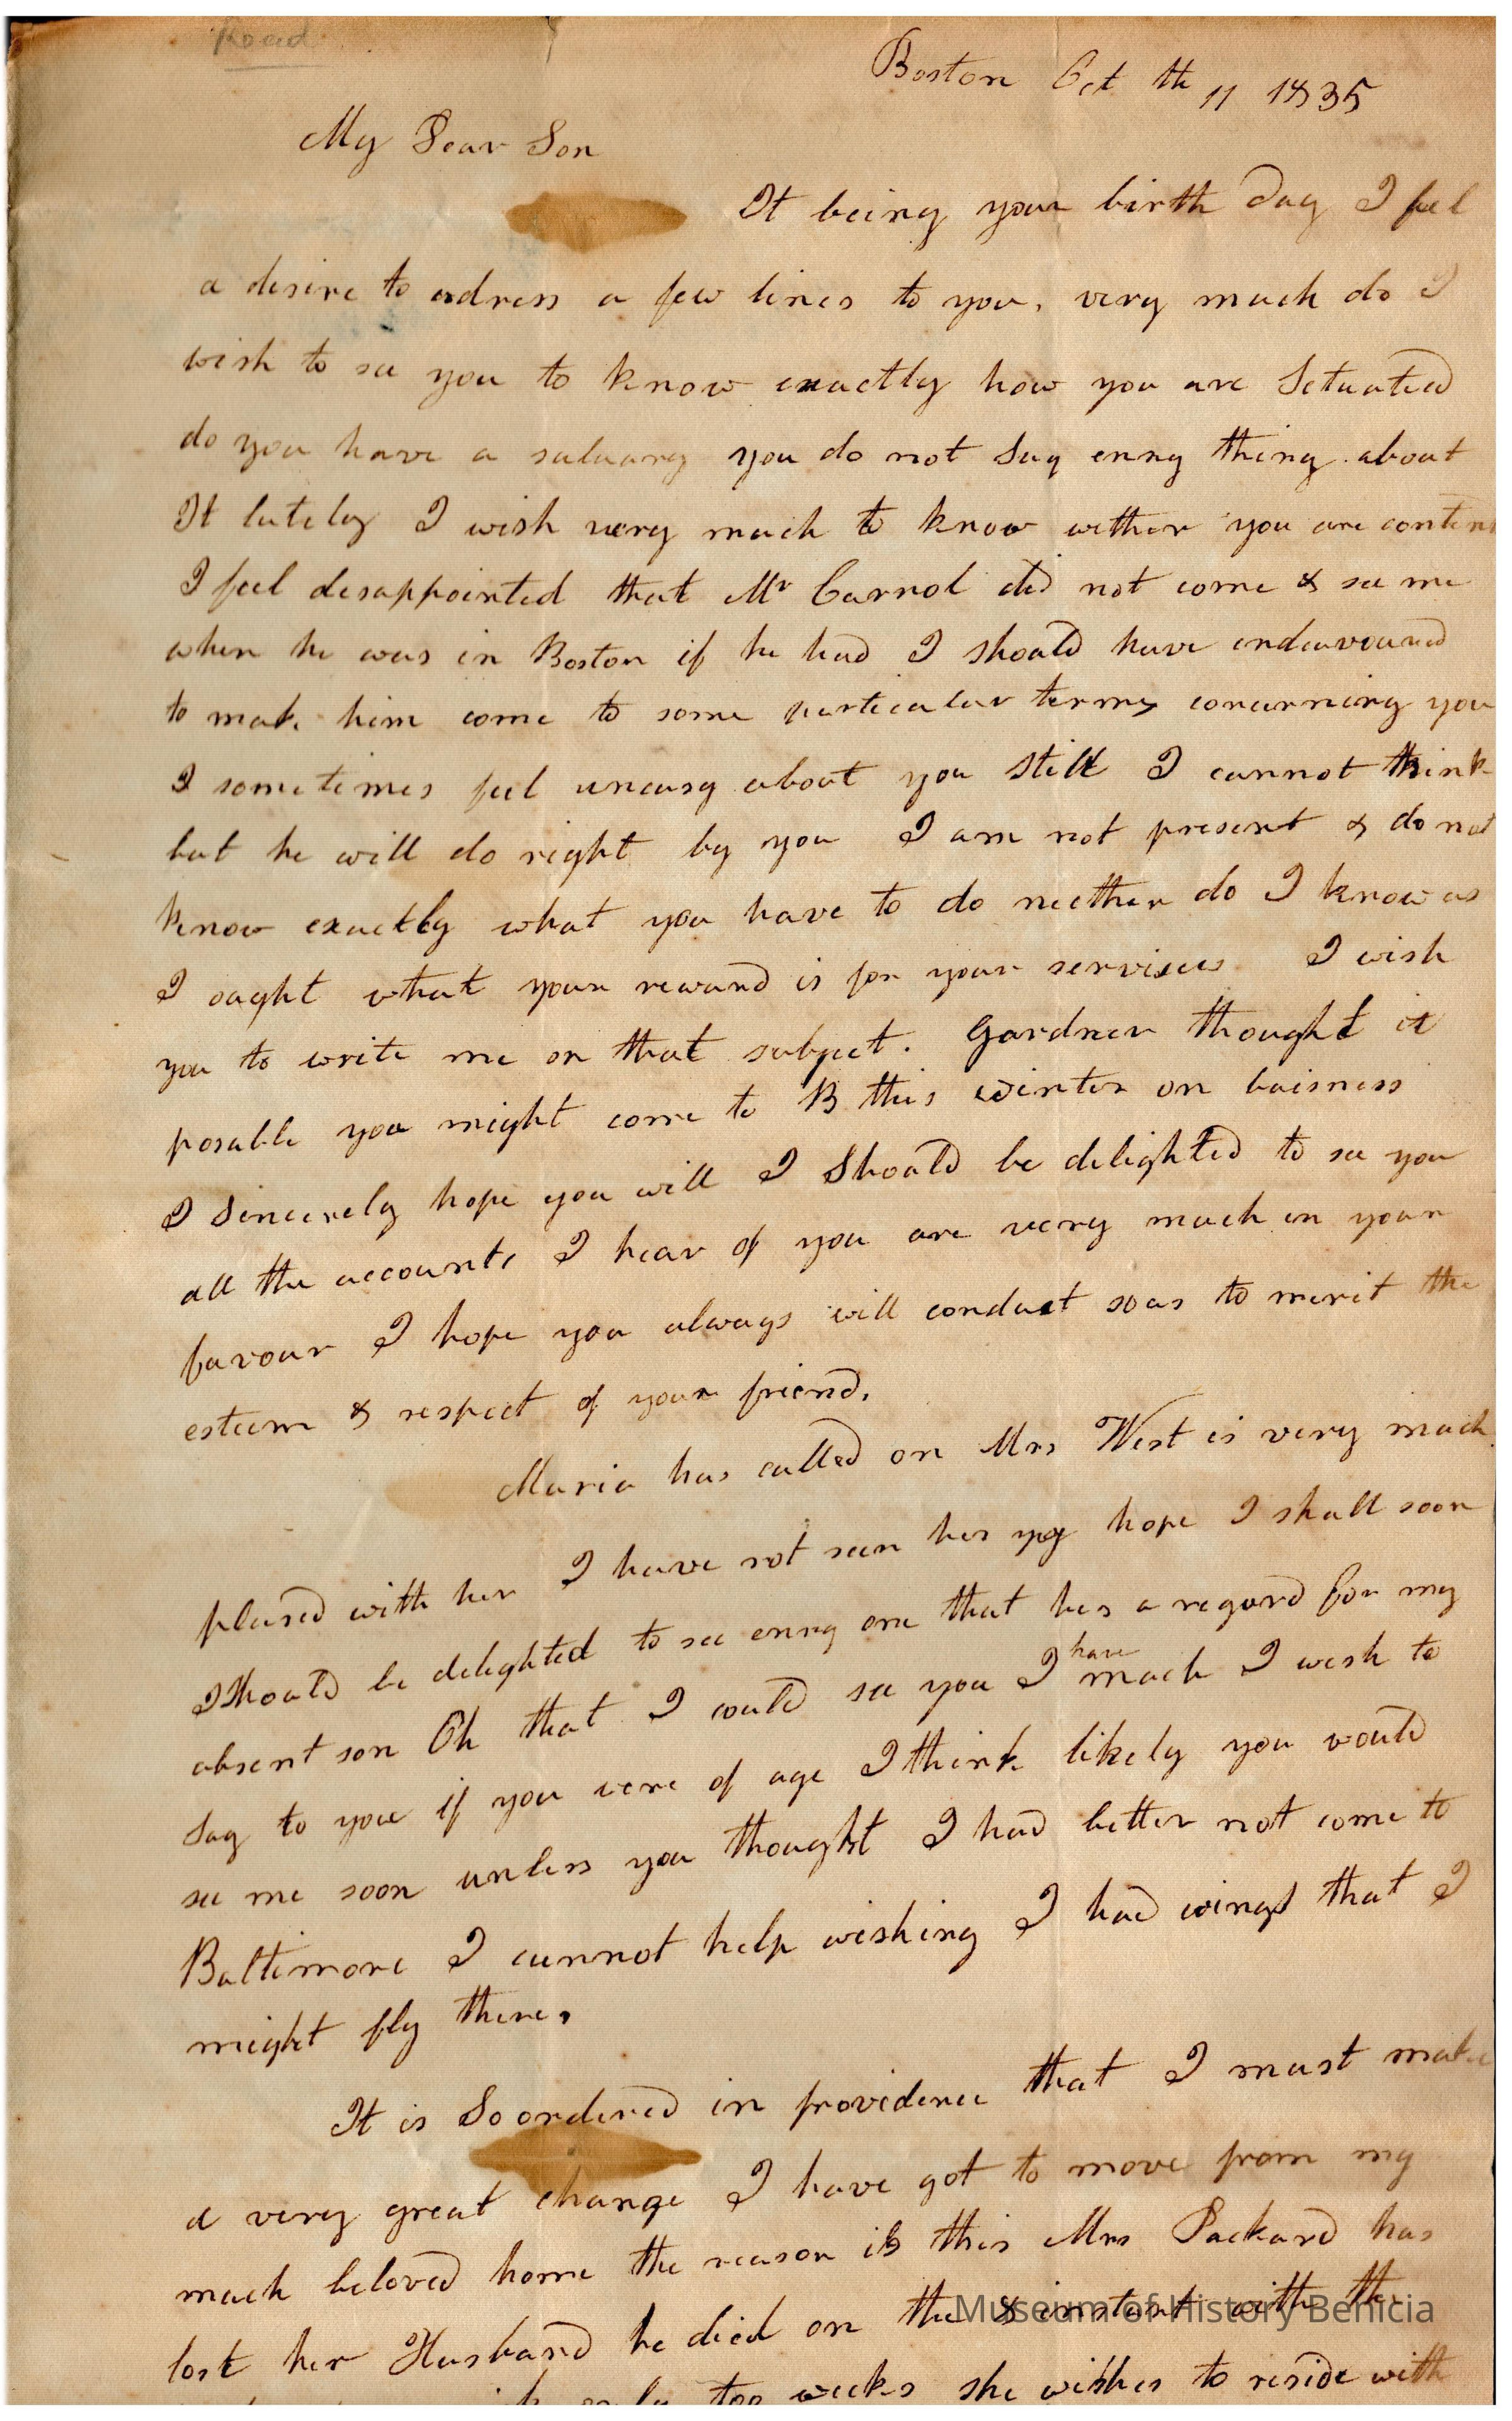 Read
Boston Oct th 11 1835
My Dear Son
It being your birth day I feel
a desire to adress a few lines to you, very much do I
wish to see you to know exactly how you are Setuated
do you have a saluary you do not Say enny thing about
It lately I wish very much to know wether you are content
I feel desappointed that Mr Carrol did not come & see me
when he was in Boston if he had I should have endeavoured
to make him come to some particular terms concurning you
I sometimes feel uneasy about you still I cannot think
but he will do right by you I am not present & do not
know exactly what you have to do neether do I know as
I ought what your reward is for your servises I wish
you to write me on that subject. Gardner thought it
posable you might come to B this winter on buisness
I Sincerely hope you will I Should be delighted to see you
all the accounts I hear of you are very much in your
favour I hope you always will conduct so as to merit the
esteem & respect of your friend.
Maria has called on Mrs West is very much
pleased with her I have not seen her hope I shall soon
I Should be delighted to see enny one that has a regard for my
absent son Oh that I could see you I have much I wish to
Say to you if you were of age I think likely you would
see me soon unless you thought I had better not come to
Baltimore I cannot help wishing I had wings that I
might fly there.
It is So ordered in providence that I must make
a very great change I have got to move from my
much beloved home the reason is this Mrs Packard has
lost her Husband he died on the 8 instant with the
weeks she wishes to reside with
Museum of History Benicia